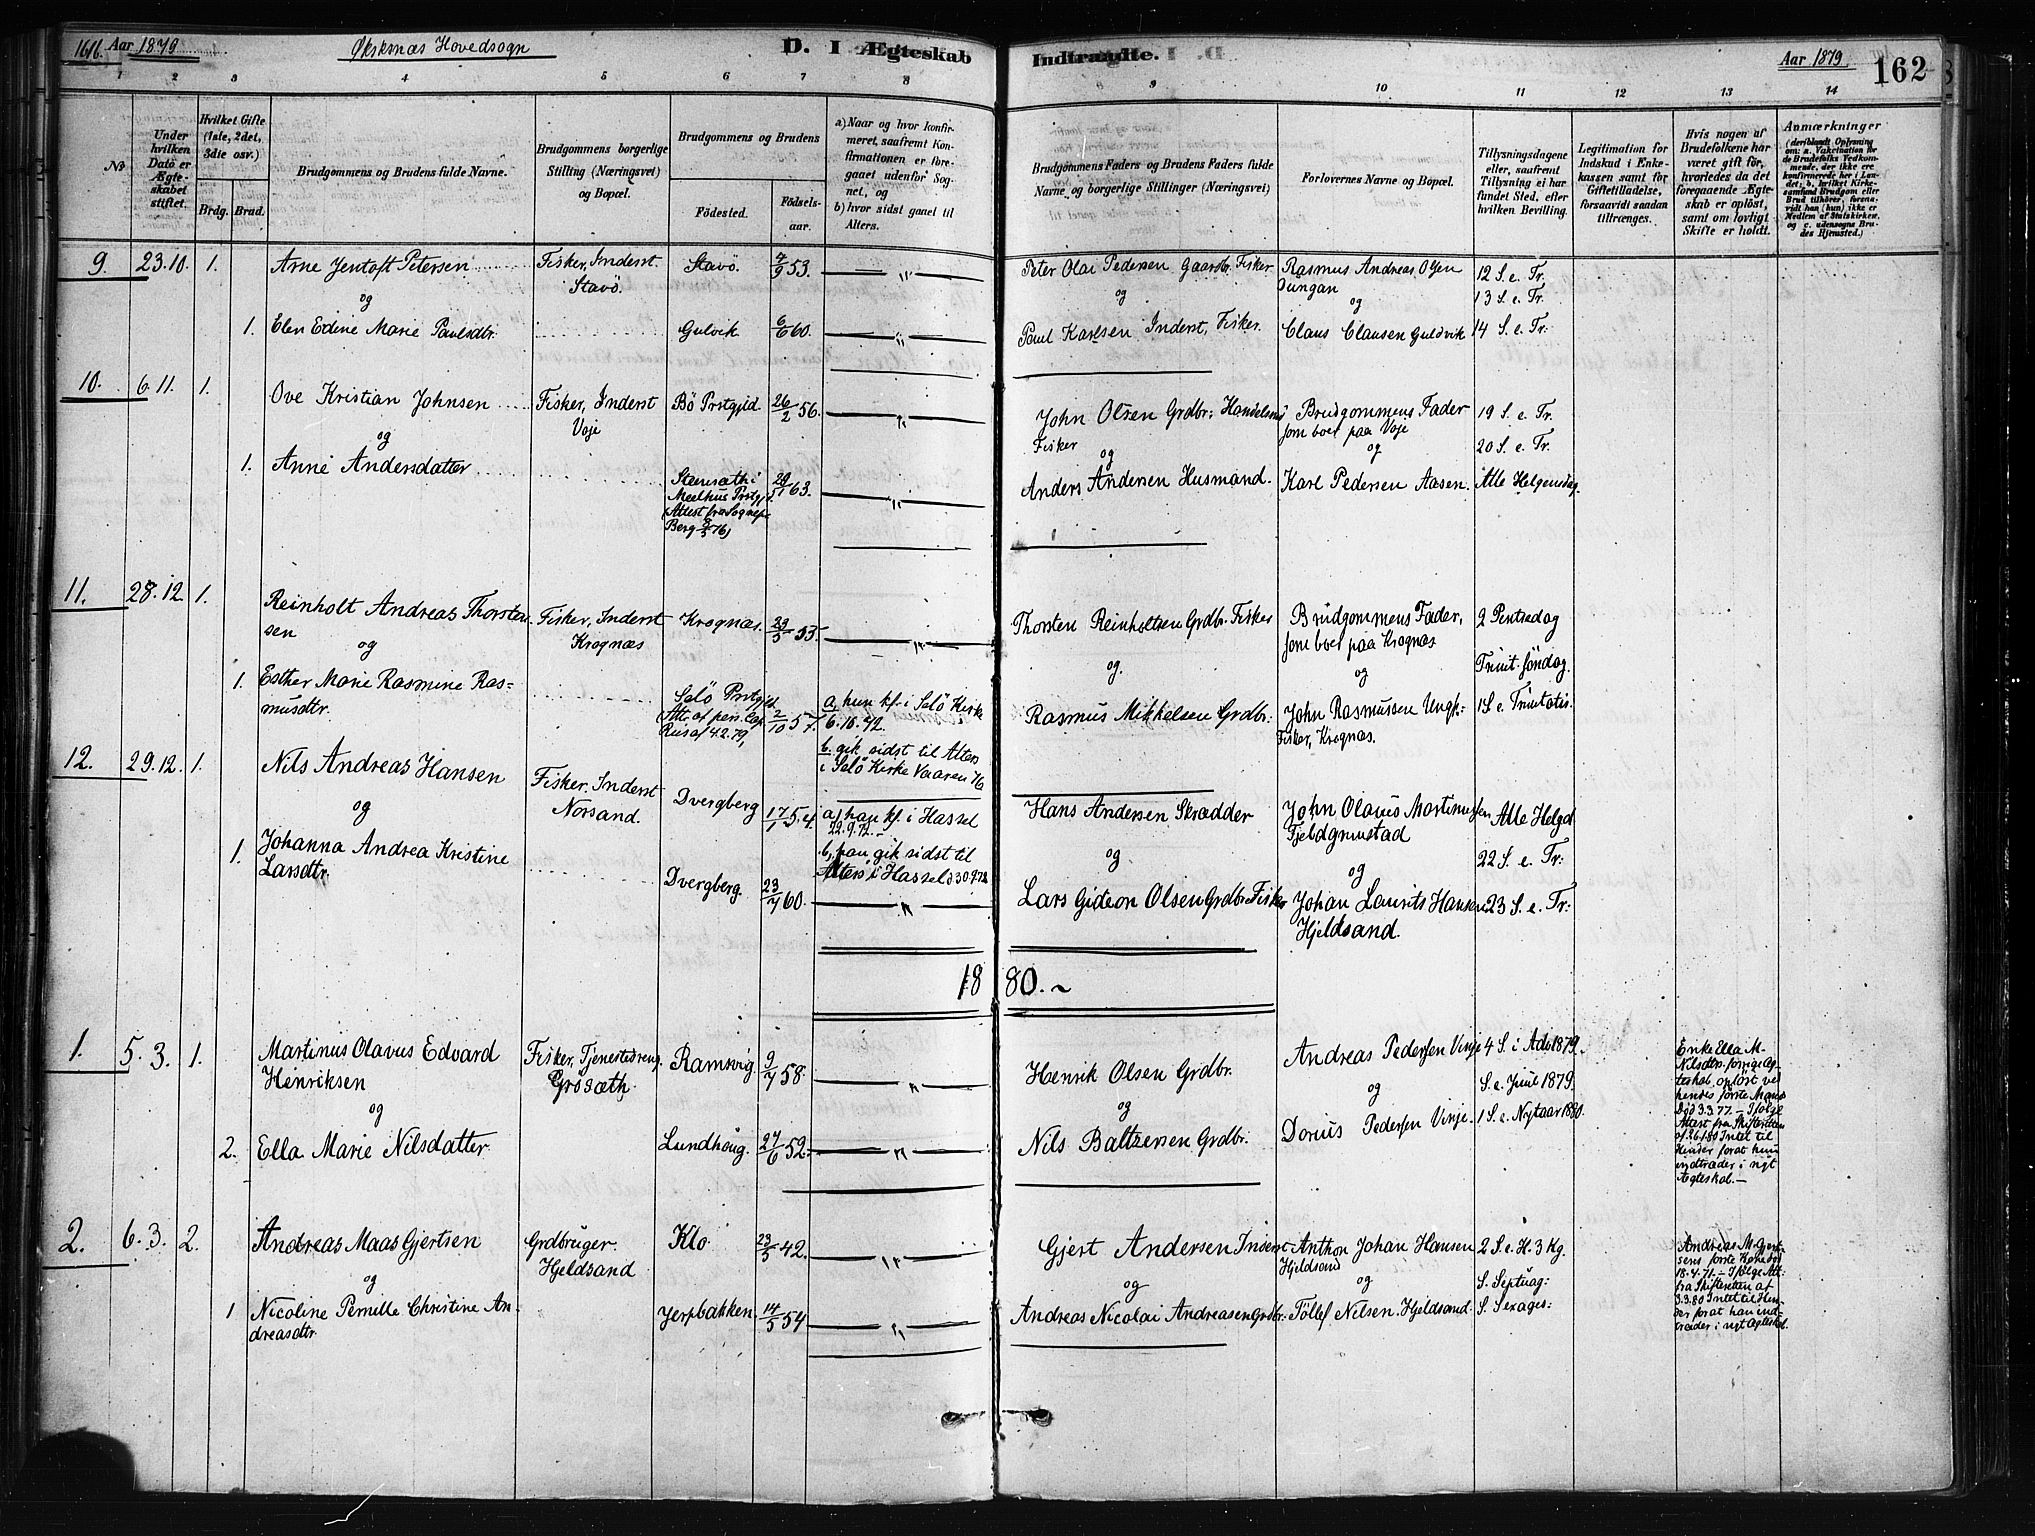 161b. Aar 1879 Øksnæs Hovedsogn D. I Ægteskab Indtraadte. Aar 1879 162
1 2 3 4 5 6 7 8 9 10 11 12 13 14
No
Under hvilken Dato er Ægteskabet stiftet.
Hvilket Gifte (1ste, 2det, 3die osv.)
Brdg. Brud.
Brudgommens og Brudens fulde Navne.
Brudgommens borgerlige Stilling (Næringsvei) og Bopæl.
Brudgommens og Brudens
Fødested. Fødsels-aar.
a) Naar og hvor konfirmeret, saafremt Konfirmationen er foregaaet udenfor Sognet, og
b) hvor sidst gaaet til Alters.
Brudgommens Faders og Brudens Faders fulde Navne og borgerlige Stillinger (Næringsvei)
Forlovernes Navne og Bopæl.
Tillysningsdagene eller, saafremt Tillysning ei har fundet Sted, efter hvilken Bevilling.
Legitimation for Indskud i Enkekassen samt for Giftetilladelse, forsaavidt saadan tiltrænges.
Hvis nogen af Brudefolkene har været gift før, hvorledes da det foregaaende Ægteskab er opløst, samt om lovligt Skifte er holdt.
Anmærkninger (deriblandt Oplysning om: a. Vakcination for de Brudefolks Vedkommende, der ikke ere konfirmerede her i Landet; b. hvilket Kirkesamfund Brudgom eller Brud tilhører, forsaavidt han (hun) ikke er Medlem af Statskirken, og c. udensogns Brudes Hjemsted.)
9. 23.10. 1. Arne Jentoft Petersen Fisker, Inderst Stavö. Stavö. 4/9 53. Peter Olai Pedersen Gaardbr. Fisker Rasmus Andreas Olsen 12 S. e. Tr.
og og og 13 S. e. Tr.
1. Elen Edine Marie Paulsdtr. Gulvik 6/6 60. Paul Karlsen Inderst, Fisker. Claus Clausen Guldvik 14 S. e. Tr.
10. 6.11. 1. Ove Kristian Johnsen Fisker, Inderst Voje Bö Prstgjld. 26/2 56. John Olsen Grdbr. Handelsmd Fisker Brudgommens Fader som boer paa Voje 19 S. e. Tr.
og og og 20 S. e. Tr.
1. Anne Andersdatter Meelhus Prstgj. (Attest fra Sognepr. Berg 63. Anders Andersen Husmand. Karl Pedersen Aasen. Alle Helgensdag.
11. 28.12. 1. Reinholt Andreas Thorstensen Fisker, Inderst Krognæs Krognæs. 53. Thorsten Reinholtsen Grdbr. Fisker Brudgommens Fader, som boer paa Krognæs 2 Pintsedag
og og. og Trinit. søndag.
1. Esther Marie Rasmine Rasmusdtr. Selö Prstgjld. 2/10 57. a, hun kf. i Selö Kirke 6.10.72. b. gik sidst til Alters i Selö Kirke Vaaren 76 Rasmus Mikkelsen Grdbr. John Rasmussen Ungk. Fisker, Krognæs. 1 S. e. Trinitatis.
12. 29.12. 1. Nils Andreas Hansen Fisker, Inderst Norsand. Dvergberg 17/1 54. a) han kf. i Hassel 22.9.72. b, han gik sidst til Alters i Hassel Hans Andersen Skrædder John Olaus Mortinussen Alle Helgd.
og og og 22 S. e. Tr.
1. Johanna Andrea Kristine Larsdtr. Dvergberg. 60. Lars Gideon Olsen Grdbr. Fisker Johan Laurits Hansen Hjeldsand. 23 S. e. Tr.
1880.
1. 5.3. 1. Martinus Olavus Edvard Henriksen Fisker, Tjenestedreng. Grosæth. Ramsvig. 58. Henrik Olsen Grdbr. Andreas Pedersen Vinje 4 S. i Adv. 1879.
og og og S. e. Juul 1879.
2. Ella Marie Nilsdatter. Lundhöug. 27/6 52. Nils Baltzersen Grdbr. Dorius Pedersen Vinje. 1 S. e. Nytaar 1880.
Enke Ella M. Nilsdtr. forrige Ægteskab opløst ved hendes første Mands Död 3.3.77. – Ifølge Attest fra Skifteretten af 2.6.80 Intet til Hinder forat hun indtræder i nyt Ægteskab. –
2. 6.3. 2. Andreas Maas Gjertsen Grdbruger. Hjeldsand Klo 23/5 42. Gjert Andersen Inderst Anthon Johan Hansen Hjeldsand 2 S. e. H. 3 Kg.
og og og S. Septuag:
1 Nicoline Pernille Christine Andreasdtr. Jerpbakken. 14/5 54 Andreas Nicolai Andreasen Grdbr. Töllef Nilsen. Hjeldsand. S. Sexages:
Andreas M. Gjertsens første Kone död 18.4.71. – Ifølge Att. fra Skifteretten af 3.3.80 Intet til Hinder forat han indtræder i nyt Ægteskab.